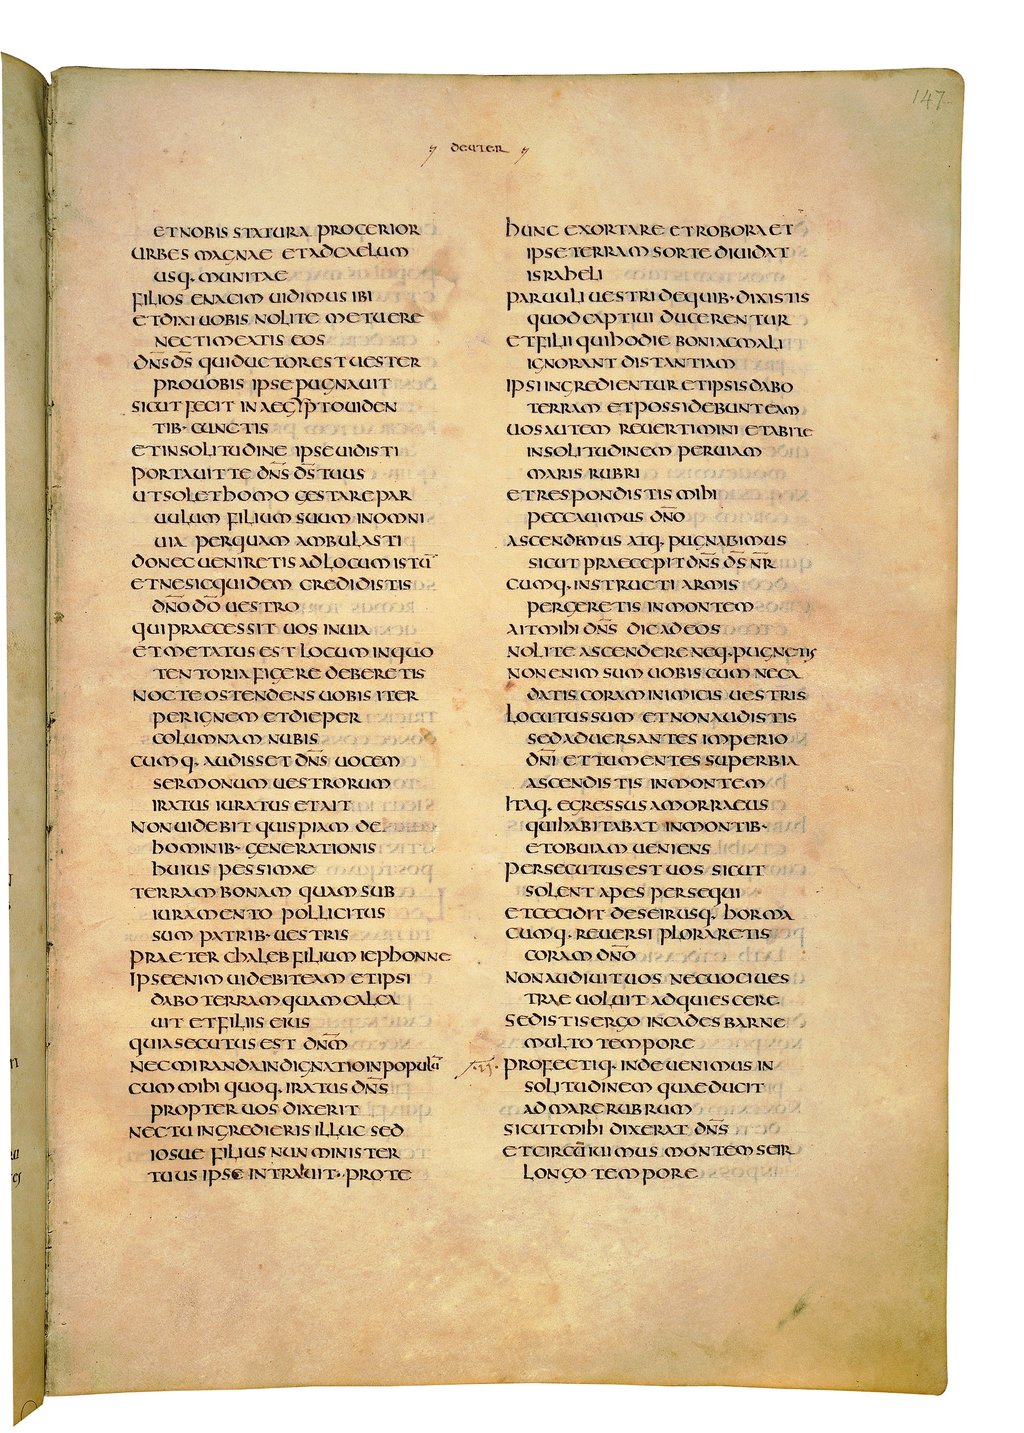 147
DEUTER
ET NOBIS STATURA PROCERIOR
URBES MAGNAE ET AD CAELUM
USQ· MUNITAE
FILIOS ENACIM UIDIMUS IBI
ET DIXI UOBIS NOLITE METUERE
NEC TIMEATIS EOS
DN̄S D̄S QUI DUCTOR EST UESTER
PRO UOBIS IPSE PUGNAUIT
SICUT FECIT IN AEGYPTO UIDEN
TIB· CUNCTIS
ET IN SOLITUDINE IPSE UIDISTI
PORTAUIT TE DN̄S D̄S TUUS
UT SOLET HOMO GESTARE PAR
UULUM FILIUM SUUM IN OMNI
UIA PER QUAM AMBULASTI
DONEC UENIRETIS AD LOCUM ISTŪ
ET NE SIC QUIDEM CREDIDISTIS
DN̄O D̄O UESTRO
QUI PRAECESSIT UOS IN UIA
ET METATUS EST LOCUM IN QUO
TENTORIA FIGERE DEBERETIS
NOCTE OSTENDENS UOBIS ITER
PER IGNEM ET DIE PER
COLUMNAM NUBIS
CUMQ· AUDISSET DN̄S UOCEM
SERMONUM UESTRORUM
IRATUS IURATUS ET AIT
NON UIDEBIT QUISPIAM DE
HOMINIB· GENERATIONIS
HUIUS PESSIMAE
TERRAM BONAM QUAM SUB
IURAMENTO POLLICITUS
SUM PATRIB· UESTRIS
PRAETER CHALEB FILIUM IEPHONNE
IPSE ENIM UIDEBIT EAM ET IPSI
DABO TERRAM QUAM CALCA
UIT ET FILIIS EIUS
QUIA SECUTUS EST DN̄M
NEC MIRANDA INDIGNATIO IN POPULŪ
CUM MIHI QUOQ· IRATUS DN̄S
PROPTER UOS DIXERIT
NEC TU INGREDIERIS ILLUC SED
IOSUE FILIUS NUN MINISTER
TUUS IPSE INTRAUIT· PRO TE
HUNC EXORTARE ET ROBORA ET
IPSE TERRAM SORTE DIUIDAT
ISRAHELI
PARUULI UESTRI DE QUIB· DIXISTIS
QUOD CAPTIUI DUCERENTUR
ET FILII QUI HODIE BONI AC MALI
IGNORANT DISTANTIAM
IPSI INGREDIENTUR ET IPSIS DABO
TERRAM ET POSSIDEBUNT EAM
UOS AUTEM REUERTIMINI ET ABITE
IN SOLITUDINEM PER UIAM
MARIS RUBRI
ET RESPONDISTIS MIHI
PECCAUIMUS DN̄O
ASCENDEMUS ATQ· PUGNABIMUS
SICUT PRAECEPIT DN̄S D̄S N̄R
CUMQ· INSTRUCTI ARMIS
PERGERETIS IN MONTEM
AIT MIHI DN̄S DIC AD EOS
NOLITE ASCENDERE NEQ· PUGNETIS
NON ENIM SUM UOBISCUM NE CA
DATIS CORAM INIMICIS UESTRIS
LOCUTUS SUM ET NON AUDISTIS
SED ADUERSANTES IMPERIO
DN̄I ET TUMENTES SUPERBIA
ASCENDISTIS IN MONTEM
ITAQ· EGRESSUS AMORRAEUS
QUI HABITABAT IN MONTIB·
ET OBUIAM UENIENS
PERSECUTUS EST UOS SICUT
SOLENT APES PERSEQUI
ET CECIDIT DE SEIR USQ· HORMA
CUMQ· REUERSI PLORARETIS
CORAM DN̄O
NON AUDIUIT UOS NEC UOCI UES
TRAE UOLUIT ADQUIESCERE
SEDISTIS ERGO IN CADESBARNE
MULTO TEMPORE
PROFECTIQ· INDE UENIMUS IN
SOLITUDINEM QUAE DUCIT
AD MARE RUBRUM
SICUT MIHI DIXERAT DN̄S
ET CIRCŪIUIMUS MONTEM SEIR
LONGO TEMPORE